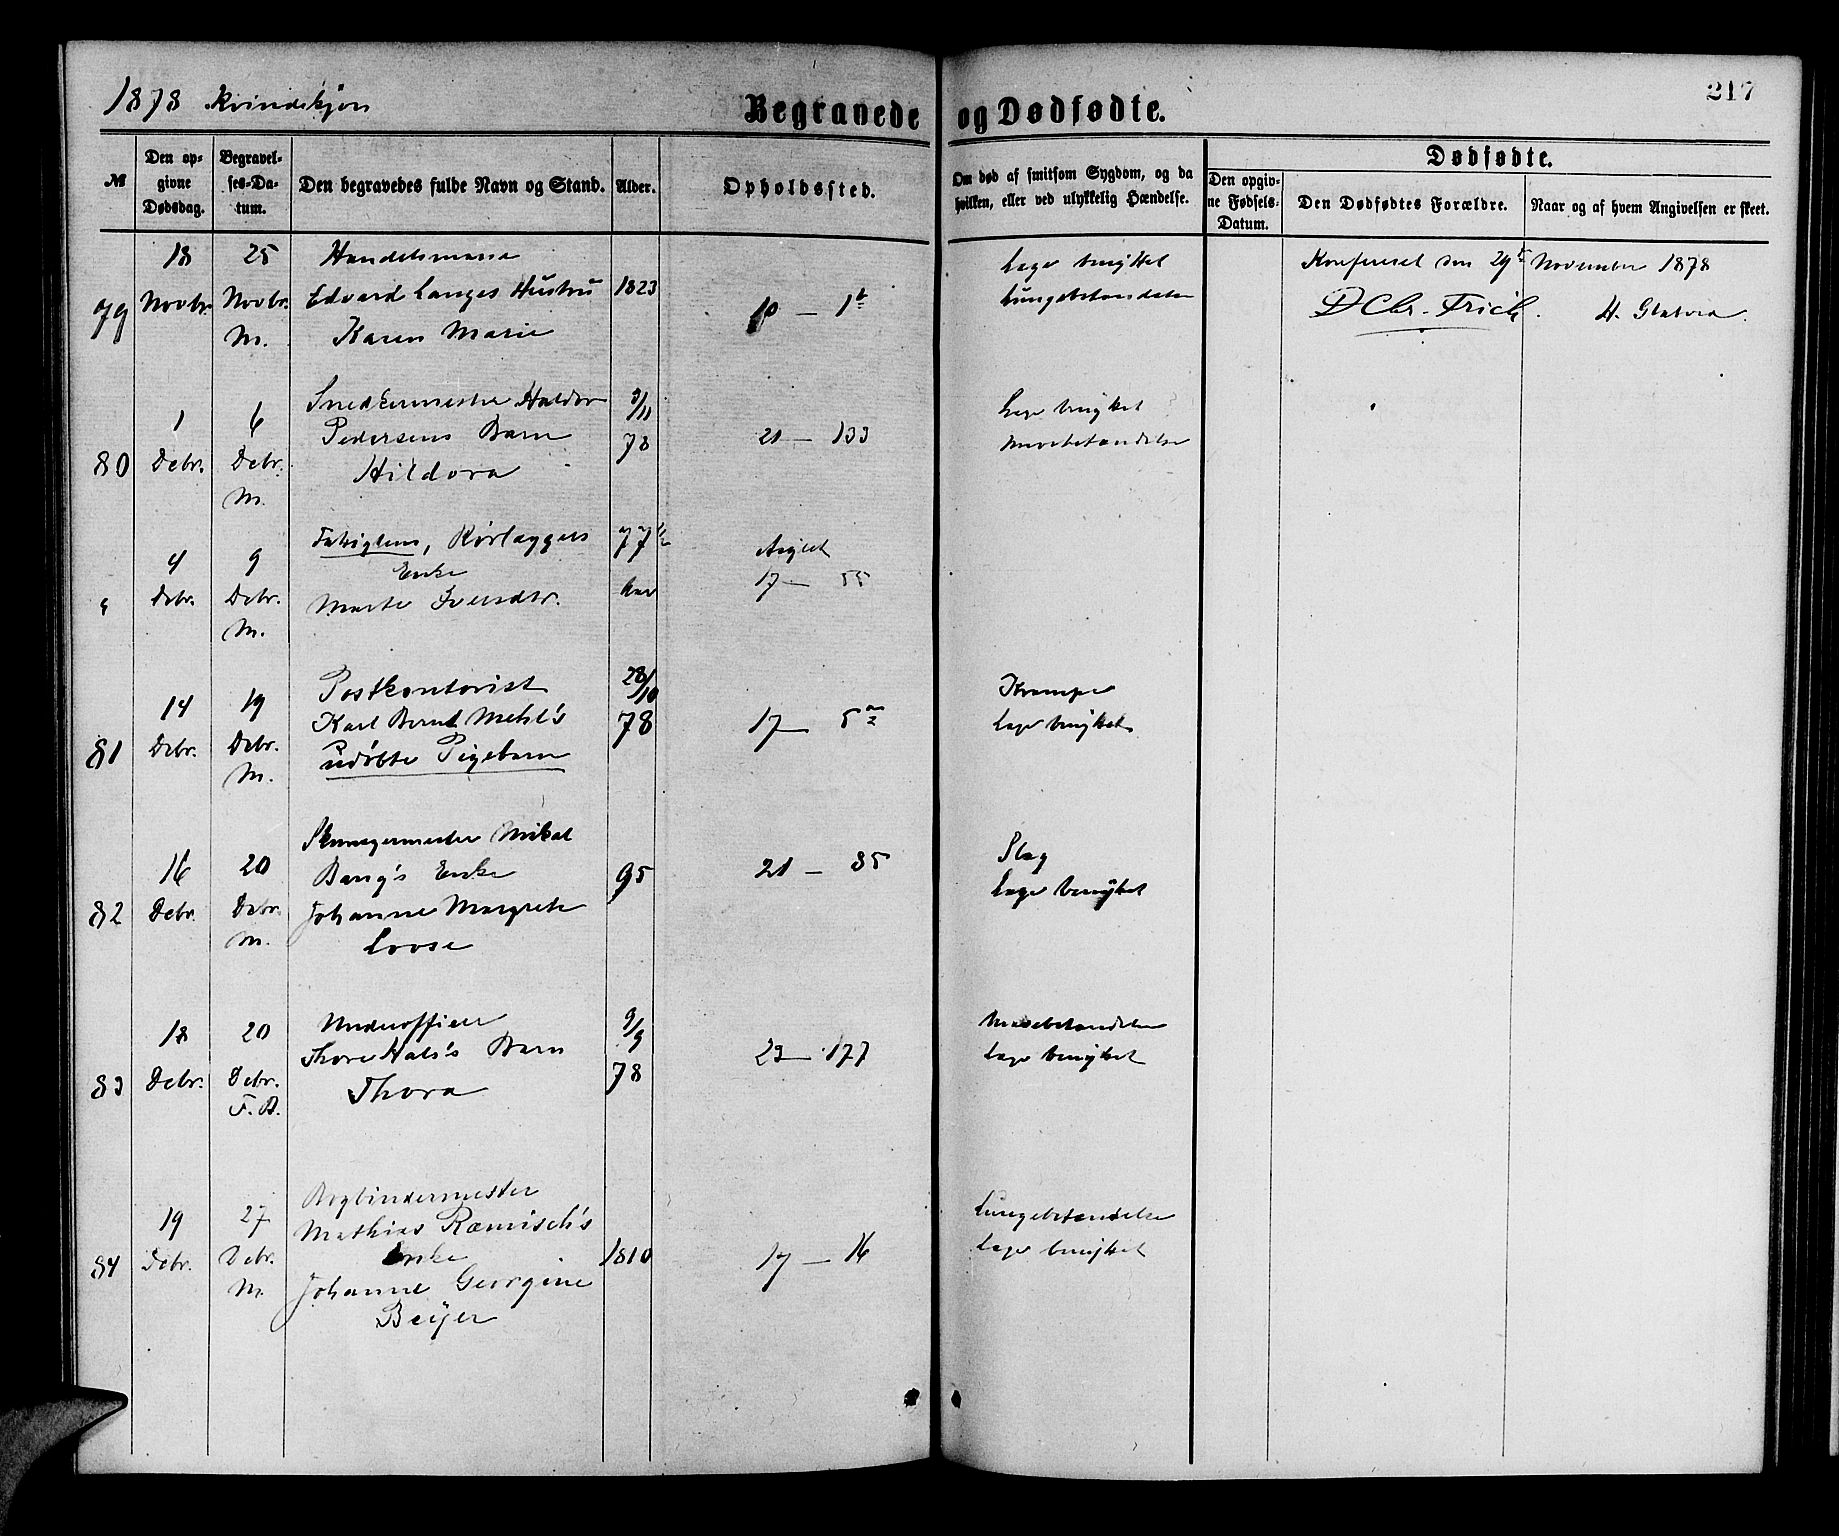 1878 Kvindekjøn
Begravede og Dødfødte.
217
№
Den opgivne Dødsdag.
Begravelses-Datum.
Den begravedes fulde Navn og Stand.
Alder.
Opholdssted.
Om død af smitsom Sygdom, og da hvilken, eller ved ulykkelig Hændelse.
Dødfødte.
Den opgivne Fødsels-Datum.
Den Dødfødtes Forældre.
Naar og af hvem Angivelsen er skeet.
79
18 Novbr.
25 Novbr. M.
Handelsmand
Edvard Langes Hustru
Karen Marie
1823
10 — 1b
Læge benyttet
Lungebetændelse
Konfereret den 29 November 1878
D Chr. Frich. H.
80
1 Debr.
6 Debr. M.
Snedkermester Haldor
Pedersens Barn
Hildora
9/11 78
21 — 133
Læge benyttet
4 Debr.
9 Debr. M.
Enke
Marte Iversdtr.
77
Asylet
17 — 55
81
14 Debr.
19 Debr. M.
Postkontorist
Karl Bernt Mehl's
udøbte Pigebarn
28/10 78
17 — 5
Krampe
Læge benyttet
82
16 Debr.
20 Debr. M.
Skomagermester Mikal
Bang's Enke
Johanne Margrete
Loose
95
21 — 35
Slag
Læge benyttet
83
18 Debr.
20 Debr. F.D.
Underofficer
Thore Hals's Barn
Thora
9/9 78
23 — 177
Læge benyttet
84
19 Debr.
27 Debr. M.
Bogbindermester
Mathias Ræmisch's
Enke
Johanne Georgine
Beÿer
1810
17 — 16
Lungebetændelse
Læge benyttet